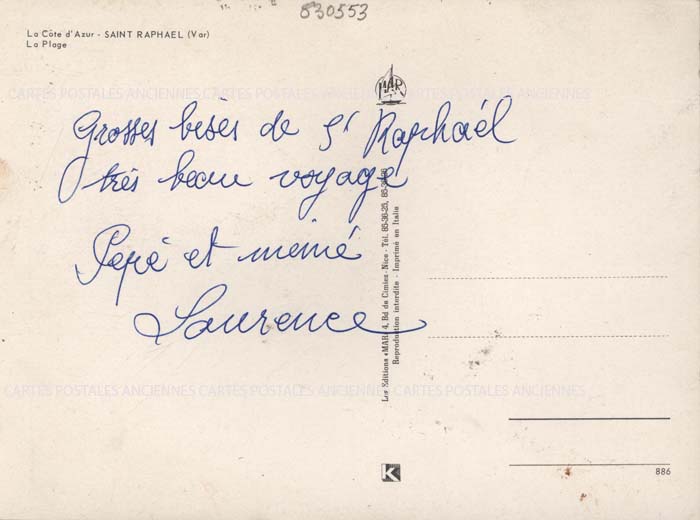 830553
La Côte d'Azur - SAINT RAPHAEL (Var)
La Plage
MAR
CARTES POSTALES ANCIENNES CARTES POSTALES ANCIENNES CARTES POSTALES ANCIENNES
Grosses bises de St Raphaél
très beau voyage
Pepé et mémé
Laurence
Les Editions «MAR» 4, Bd de Cimiez - Nice - Tél. 85-36-25, 85-36-26
Reproduction interdite - Imprimé en Italie
CARTES POSTALES ANCIENNES CARTES POSTALES ANCIENNES CARTES POSTALES ANCIENNES
K
886